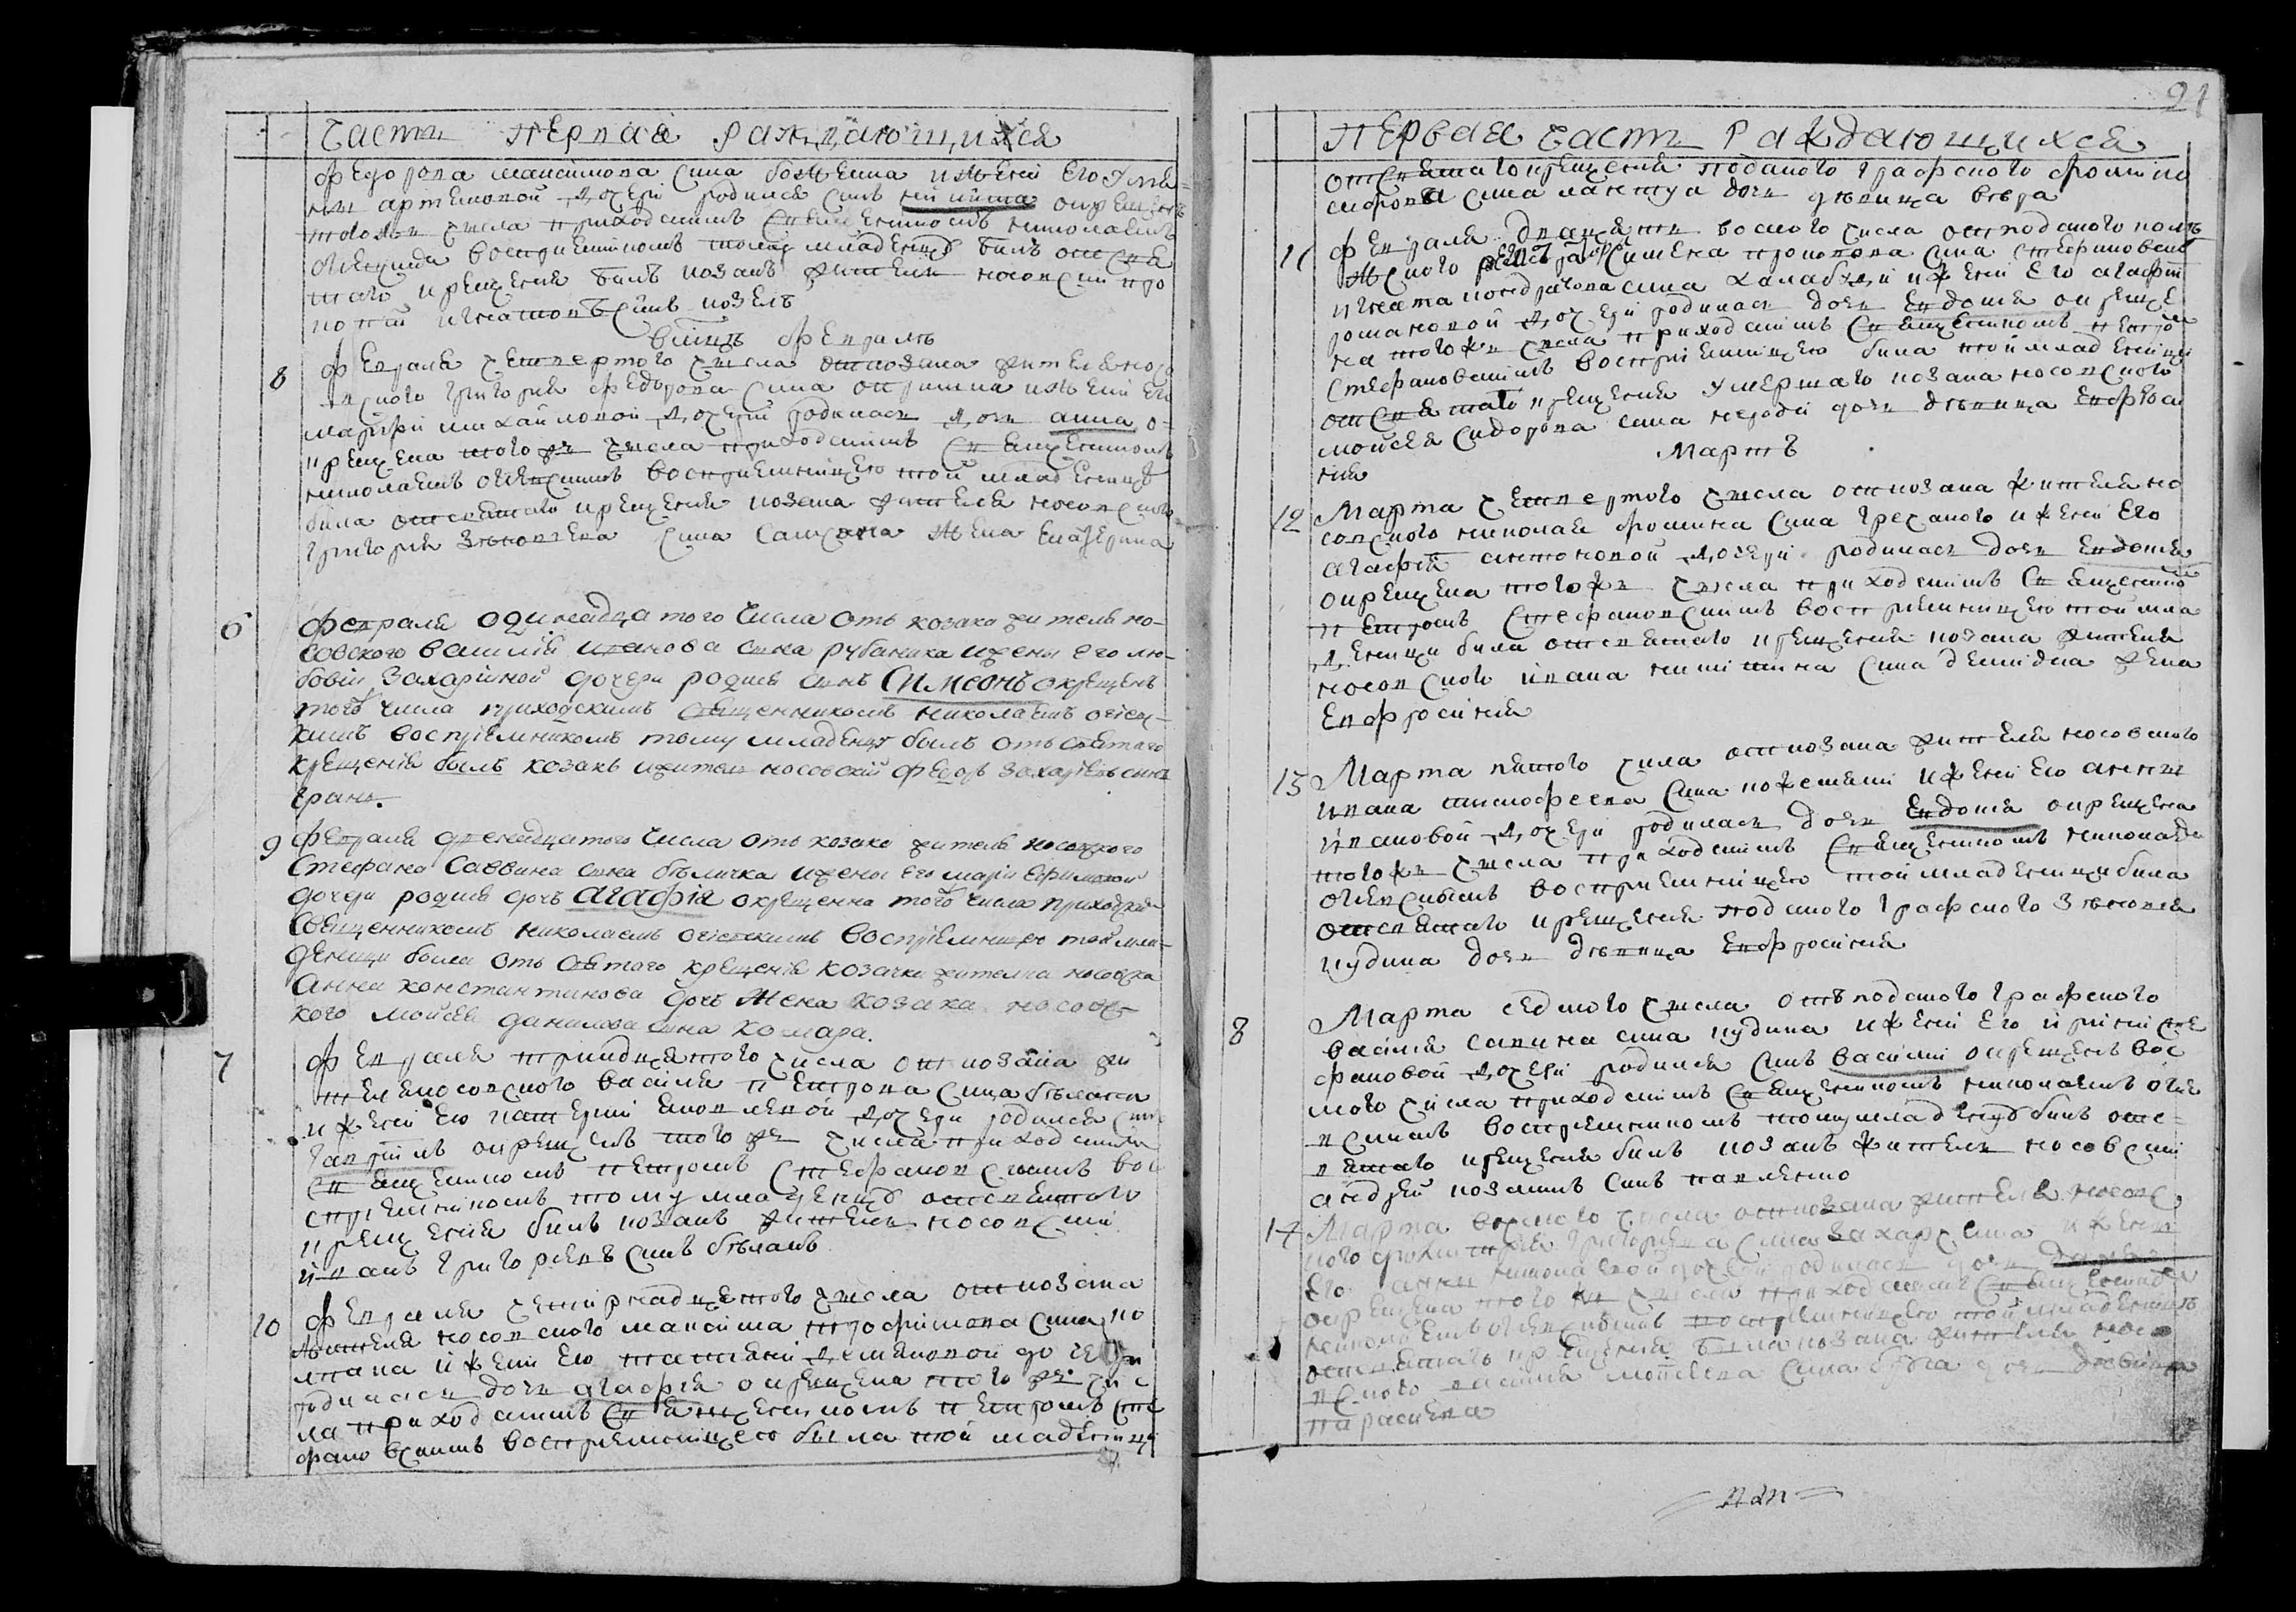 Часть первая раждающихся
Федорова Максимова сина божения и жени его Улiя-
ни Артемовой дочери родился синъ Никита окрещенъ
того же числа приходскимъ священникомъ Николаемъ
Огiевским воспрiемникомъ тому младенцу билъ от свя
таго крещения билъ козакъ житель носовский про
копий Игнатовъ синъ козелъ
Феврал
8
Февраля четвертого числа от козака жителя носо
вского Григория Федорова сина и жени его
Марфи Михайловой дочери родилась дочь Анна о-
крещена того же числа приходскимъ священникомъ
Николаемъ Огiевскимъ восприемницею той младенице
била от святаго крещения козака жителя носовского
Григория Зѣновiева сина Самсона жена Екатерина
6
Февраля одинадцатого числа отъ козака жителя но-
совского Василiя Иванова сина рубаника и жены его лю-
бовiи Захарiиной дочери родися синъ Симеонъ окрещенъ
того числа приходскимъ священникомъ Николаемъ Огiев-
скимъ воспрiемникомъ тому младенцу былъ отъ святаго
крещенiя былъ козакъ и житель носовскiй Федоръ Захарiевъ сынъ
9
Февраля двенадцатого числа отъ козака жителя носовского
Стефана Саввина сина бѣличка и жены его Марiи Ефимовой
дочери родися дочъ Агафiя окрещенна того числа приходским
священникомъ Николаемъ Огiевскимъ воспрiемницею той мла-
деници была отъ святого крещенiя козачка жителка носовска
Анна Константинова дочъ жена козака носовс-
кого Мойсея Данилова сина комара.
7
Февраля тринадцятого числа от козака жи
теля носовского Василия Петрова сина бѣлаки
и жени его Катерини Яковлевой дочери родился синъ
Гаврiилъ окрещенъ того же числа приходскимъ
священникомъ Петромъ Стефановскимъ вос
приемникомъ тому младенцу от святого
крещения билъ козакъ житель носовский
Иванъ Григориевъ синъ бѣлакъ
10
Февраля четирнадцятого числа от козака
жителя носовского Максима Трофимова сина
и жени его Татияни Демяновой дочери
родилась дочь Агафия окрещена того же чис
ла приходскимъ священникомъ Петромъ Сте
фановскимъ восприемницею била той младеници
21
Первая часть Раждающихся
от святаго крещения подданого графского
сидорова сина дочь дѣвица Вѣра
11
Февраля двадцять восмого числа от подданого
Симеона Прокопова сина Стефановски
Игната Кондратова сина халабуди и жени его Агафии
Романовой дочери родилась дочь Евдокия окреще
на того же числа приходскимъ священникомъ Петром
Стефановскимъ восприемницею била той младеници
от святаго крещения умершаго козака носовского
Мойсея Сидорова сина дочь дѣвица Евфроси
ния
Мартъ
12
Марта четвертого числа от козака жителя но
совского Николая Фомина сина гречаного и жени его
Агафии Антоновой дочери родилась дочь Евдокия
окрещена того же числа приходскимъ священико
Петромъ Стефановскимъ восприемницею той мла
деници била от святаго крещения козака жителя
носовского Ивана Никитина сина демидка жена
Евфросиния
13
Марта пятого числа от козака жителя носовского
Ивана Тимофеева сина кожемяки и жени его Анни
Ивановой дочери родилась дочь Евдокия окрещена
того же числа приходскимъ священникомъ Николаем
Огiевскимъ восприемницею той младеници била
от святаго крещения подданого графского Зѣновия
кудина дочь дѣвица Евфросиния
8
Марта седмого числа отъ подданого графского
Василя Савина сина кудина и жени его Ирини Сте
фановой дочери родился синъ Василий окрещенъ вос
мого числа приходскимъ священникомъ Николаемъ Огiе
вскимъ восприемникомъ тому младенцу билъ от с
вятаго крещения билъ козакъ житель носовский
Андрей козакивъ синъ Павленко
14
Марта восмого числа от козака жителя носовс
кого Григорева сина Захарченка и жени
его Анни Николаевой дочери родилась дочь
окрещена того же числа приходскимъ священником
Николаемъ Огiевскимъ восприемницею той младеници
от святаго крещения била козака жителя носо
вского Василя Мойсеева сина дочь дѣвица
Параскева